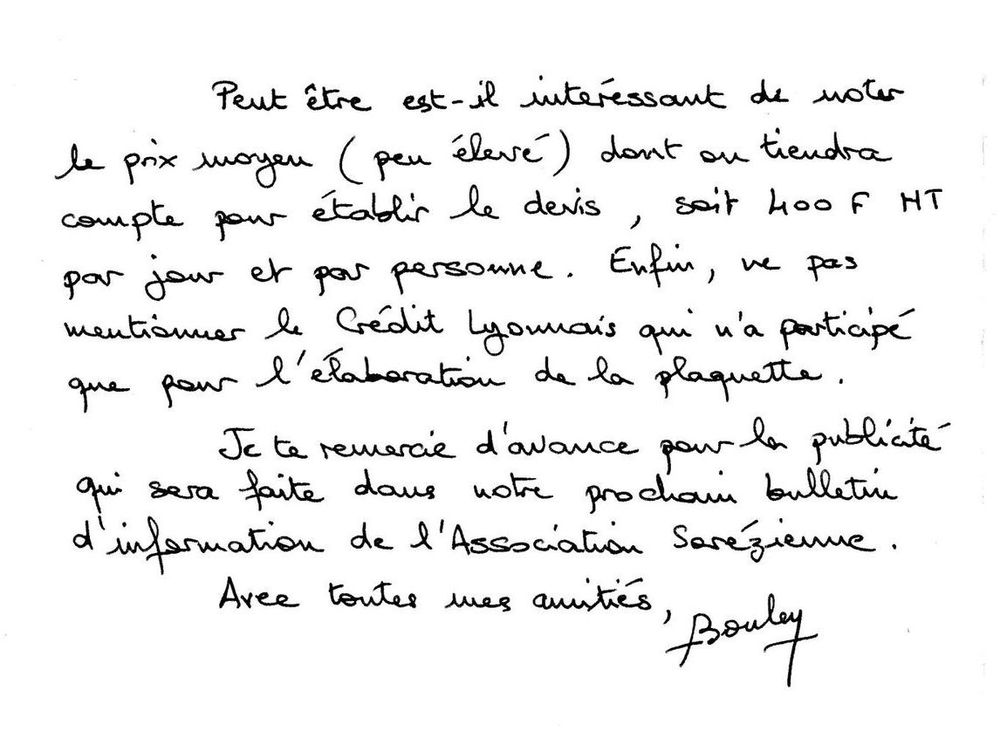 Peut être est-il intéressant de noter
le prix moyen (peu élevé) dont on tiendra
compte pour établir le devis, soit 400 F HT
par jour et par personne. Enfin, ne pas
mentionner le Crédit Lyonnais qui n'a participé
que pour l'élaboration de la plaquette.
Je te remercie d'avance pour la publicité
qui sera faite dans notre prochain bulletin
d'information de l'Association Sorézienne.
Avec toutes mes amitiés,
Bouley